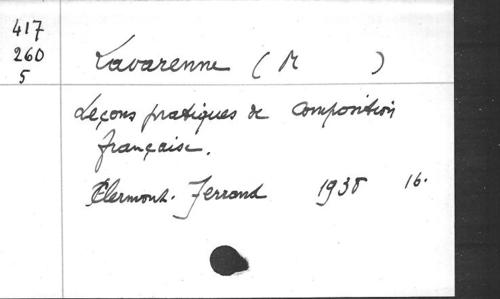 417
260
5
Lavarenne ( M )
Leçons pratiques de composition
française.
Clermont-Ferrand 1938 16.